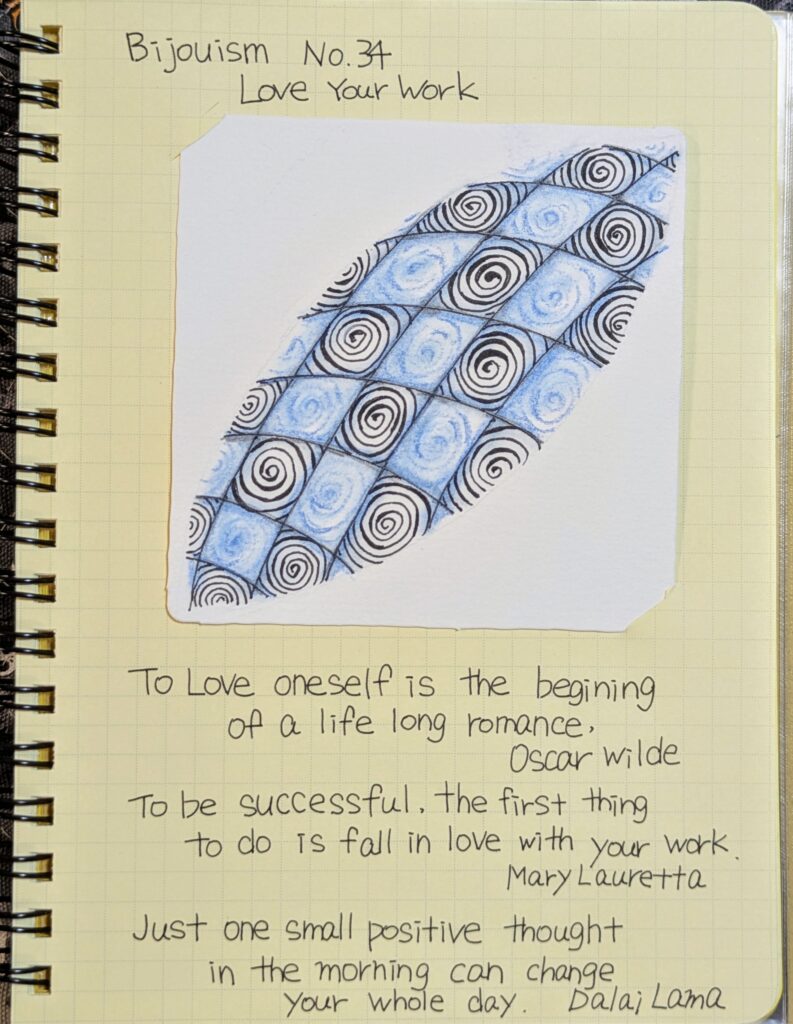 Bijouism No.34
Love Your Work
To Love oneself is the begining
of a life long romance.
Oscar Wilde
To be successful, the first thing
to do is fall in love with your work.
Mary Lauretta
Just one small positive thought
in the morning can change
your whole day. Dalai Lama